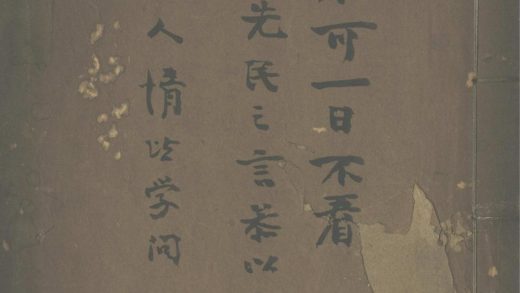 可一日不看
先民之言恭以
人情比学問